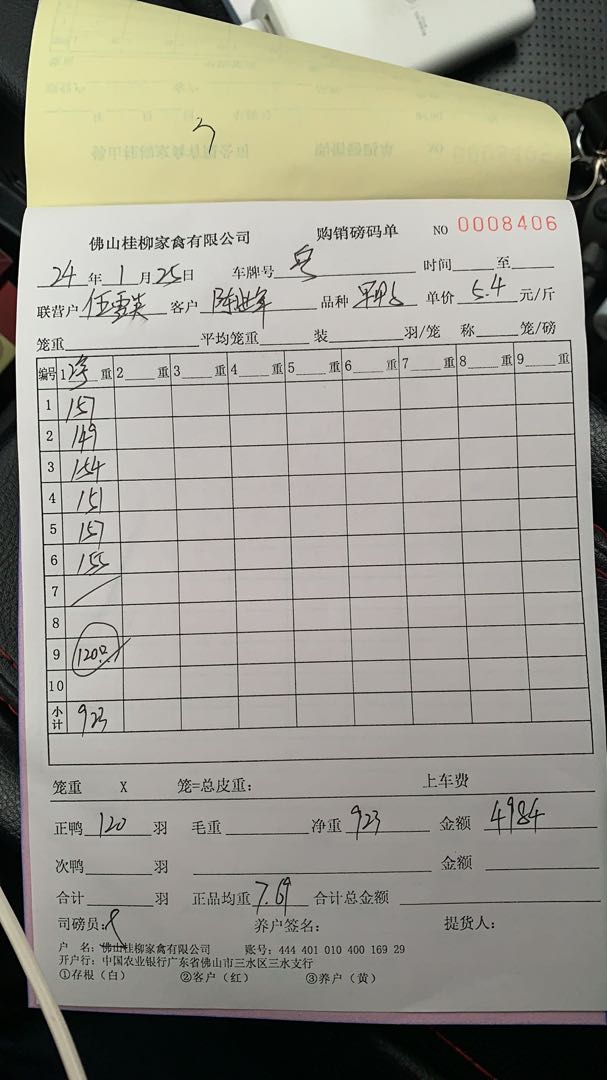 佛山桂柳家禽有限公司 购销磅码单 NO 0008406
24 年 1 月 25 日 车牌号 时间 至
联营户 伍雪英 客户 品种 单价 5.4 元/斤
笼重 平均笼重 装 羽/笼 称 笼/磅
编号 1 重 2 重 3 重 4 重 5 重 6 重 7 重 8 重 9 重
1 157
2 149
3 154
4 151
5 157
6 155
7
8
9 120只
10
小计 923
笼重 X 笼=总皮重: 上车费
正鸭 120 羽 毛重 净重 923 金额 4984
次鸭 羽 金额
合计 羽 正品均重 7.69 合计总金额
司磅员: 养户签名: 提货人:
户 名: 佛山桂柳家禽有限公司 账号: 444 401 010 400 169 29
开户行: 中国农业银行广东省佛山市三水区三水支行
①存根(白) ②客户(红) ③养户(黄)